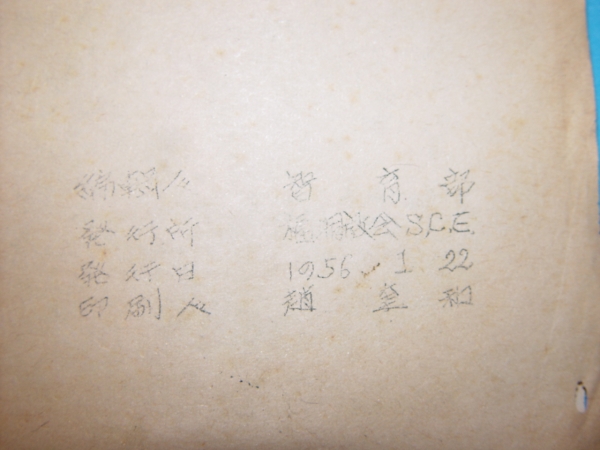 編輯人 智育部
發行所 S.C.E.
發行日 1956. 1 22
印刷人 趙 和